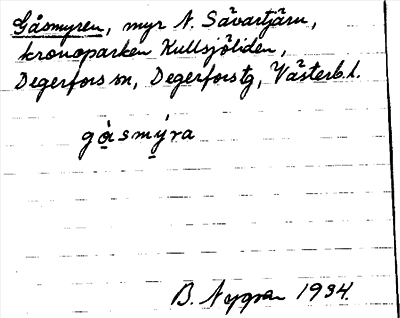 Gåsmyren, myr N. Sävartjärn,
kronoparken Kullsjöliden,
Degerfors sn, Degerfors tg, Västerb. l.
gå̀smý̠ra
B. Nygren 1934.